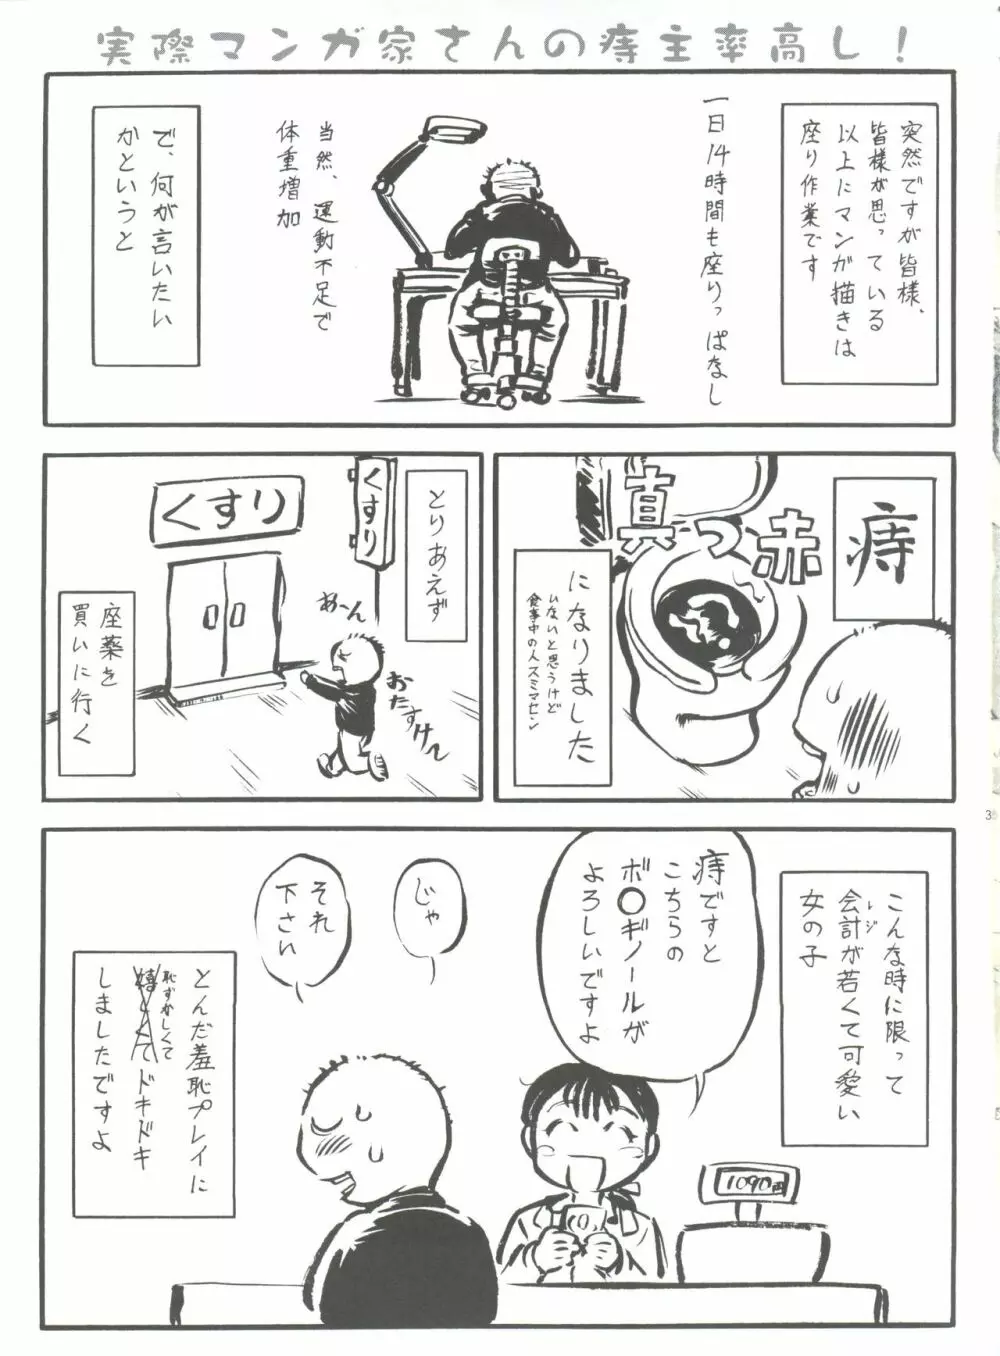 実際マンガ家さんの痔主率高し！
突然ですが皆様、
皆様が思っている
以上にマンガ描きは
座り作業です
一日14時間も座りっぱなし
当然、運動不足で
体重増加
で、何が言いたい
かというと
痔
真っ赤
になりました
いないと思うけど
食事中の人スミマセン
とりあえず
くすり
くすり
あーん
おたすけ〜
座薬を
買いに行く
こんな時に限って
レジ
会計が若くて可愛い
女の子
痔ですと
こちらの
ボ〇ギノールが
よろしいですよ
じゃ
それ
下さい
1090円
とんだ羞恥プレイに
恥ずかしくて
嬉しくてドキドキ
しましたですよ
3